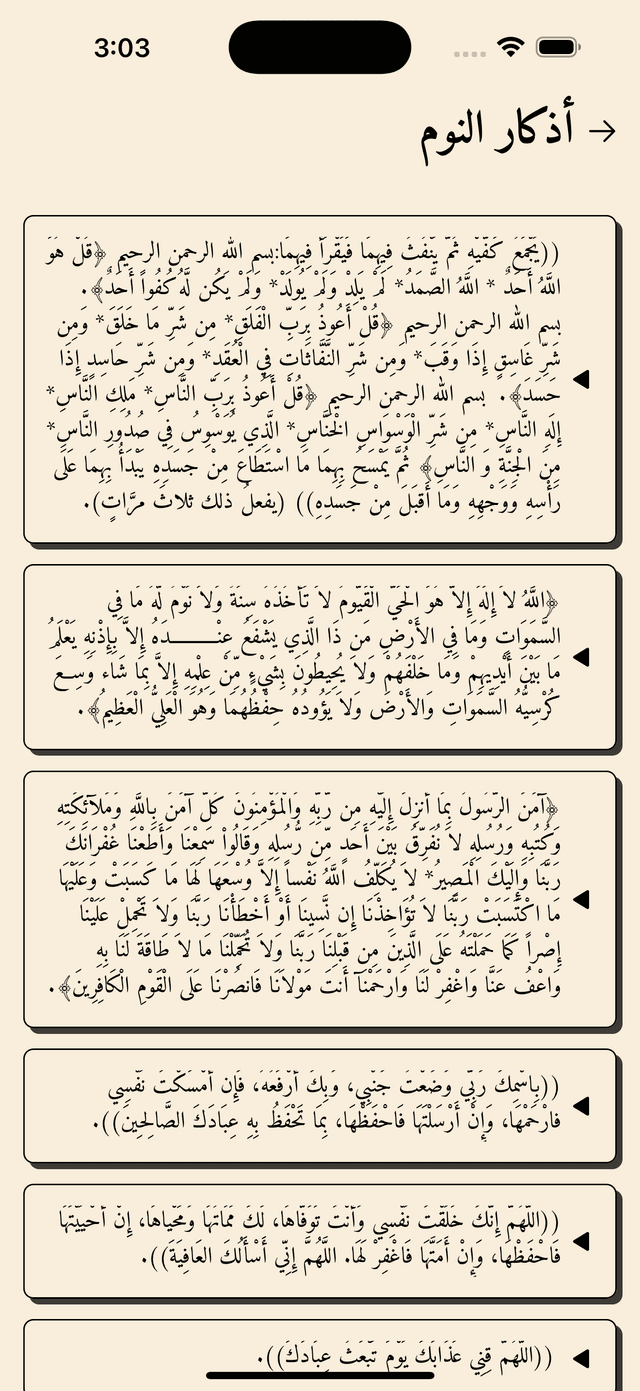 3:03
أذكار النوم
((يَجْمَعُ كَفَّيْهِ ثُمَّ يَنْفُثُ فِيهِمَا فَيَقْرَأُ فِيهِمَا:بسم الله الرحمن الرحيم ﴿قُلْ هُوَ
اللَّهُ أَحَدٌ * اللَّهُ الصَّمَدُ* لَمْ يَلِدْ وَلَمْ يُولَدْ* وَلَمْ يَكُن لَّهُ كُفُواً أَحَدٌ﴾.
بسم الله الرحمن الرحيم ﴿قُلْ أَعُوذُ بِرَبِّ الْفَلَقِ* مِن شَرِّ مَا خَلَقَ* وَمِن
شَرِّ غَاسِقٍ إِذَا وَقَبَ* وَمِن شَرِّ النَّفَّاثَاتِ فِي الْعُقَدِ* وَمِن شَرِّ حَاسِدٍ إِذَا
حَسَدَ﴾. بسم الله الرحمن الرحيم ﴿قُلْ أَعُوذُ بِرَبِّ النَّاسِ* مَلِكِ النَّاسِ*
إِلَهِ النَّاسِ* مِن شَرِّ الْوَسْوَاسِ الْخَنَّاسِ* الَّذِي يُوَسْوِسُ فِي صُدُورِ النَّاسِ*
مِنَ الْجِنَّةِ وَ النَّاسِ﴾ ثُمَّ يَمْسَحُ بِهِمَا مَا اسْتَطَاعَ مِنْ جَسَدِهِ يَبْدَأُ بِهِمَا عَلَى
رَأْسِهِ وَوَجْهِهِ وَمَا أَقْبَلَ مِنْ جَسَدِهِ)) (يفعلُ ذلك ثلاثَ مرَّاتٍ).
﴿اللَّهُ لاَ إِلَهَ إِلاَّ هُوَ الْحَيُّ الْقَيُّومُ لاَ تَأْخُذُهُ سِنَةٌ وَلاَ نَوْمٌ لَّهُ مَا فِي
السَّمَوَاتِ وَمَا فِي الأَرْضِ مَن ذَا الَّذِي يَشْفَعُ عِنْـــــــــدَهُ إِلاَّ بِإِذْنِهِ يَعْلَمُ
مَا بَيْنَ أَيْدِيهِمْ وَمَا خَلْفَهُمْ وَلاَ يُحِيطُونَ بِشَيْءٍ مِّنْ عِلْمِهِ إِلاَّ بِمَا شَاء وَسِعَ
كُرْسِيُّهُ السَّمَوَاتِ وَالأَرْضَ وَلاَ يَؤُودُهُ حِفْظُهُمَا وَهُوَ الْعَلِيُّ الْعَظِيمُ﴾.
﴿آمَنَ الرَّسُولُ بِمَا أُنزِلَ إِلَيْهِ مِن رَّبِّهِ وَالْمُؤْمِنُونَ كُلٌّ آمَنَ بِاللَّهِ وَمَلآئِكَتِهِ
وَكُتُبِهِ وَرُسُلِهِ لاَ نُفَرِّقُ بَيْنَ أَحَدٍ مِّن رُّسُلِهِ وَقَالُواْ سَمِعْنَا وَأَطَعْنَا غُفْرَانَكَ
رَبَّنَا وَإِلَيْكَ الْمَصِيرُ* لاَ يُكَلِّفُ اللَّهُ نَفْساً إِلاَّ وُسْعَهَا لَهَا مَا كَسَبَتْ وَعَلَيْهَا
مَا اكْتَسَبَتْ رَبَّنَا لاَ تُؤَاخِذْنَا إِن نَّسِينَا أَوْ أَخْطَأْنَا رَبَّنَا وَلاَ تَحْمِلْ عَلَيْنَا
إِصْراً كَمَا حَمَلْتَهُ عَلَى الَّذِينَ مِن قَبْلِنَا رَبَّنَا وَلاَ تُحَمِّلْنَا مَا لاَ طَاقَةَ لَنَا بِهِ
وَاعْفُ عَنَّا وَاغْفِرْ لَنَا وَارْحَمْنَآ أَنتَ مَوْلاَنَا فَانصُرْنَا عَلَى الْقَوْمِ الْكَافِرِينَ﴾.
((بِاسْمِكَ رَبِّي وَضَعْتُ جَنْبِي، وَبِكَ أَرْفَعُهُ، فَإِن أَمْسَكْتَ نَفْسِي
فارْحَمْهَا، وَإِنْ أَرْسَلْتَهَا فَاحْفَظْهَا، بِمَا تَحْفَظُ بِهِ عِبَادَكَ الصَّالِحِينَ)).
((اللَّهُمَّ إِنَّكَ خَلَقْتَ نَفْسِي وَأَنْتَ تَوَفَّاهَا، لَكَ مَمَاتُهَا وَمَحْياهَا، إِنْ أَحْيَيْتَهَا
فَاحْفَظْهَا، وَإِنْ أَمَتَّهَا فَاغْفِرْ لَهَا. اللَّهُمَّ إِنِّي أَسْأَلُكَ العَافِيَةَ)).
((اللَّهُمَّ قِنِي عَذَابَكَ يَوْمَ تَبْعَثُ عِبَادَكَ)).